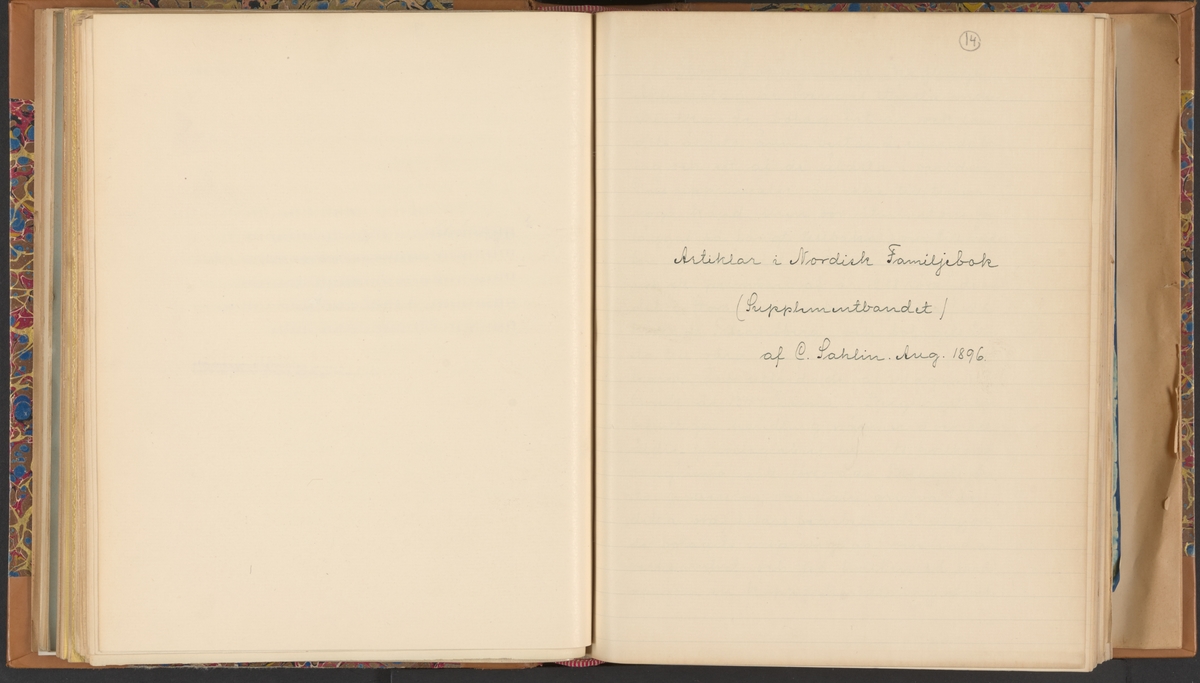 14
Artiklar i Nordisk Familjebok
(Supplementbandet)
af C. Sahlin. Aug. 1896.